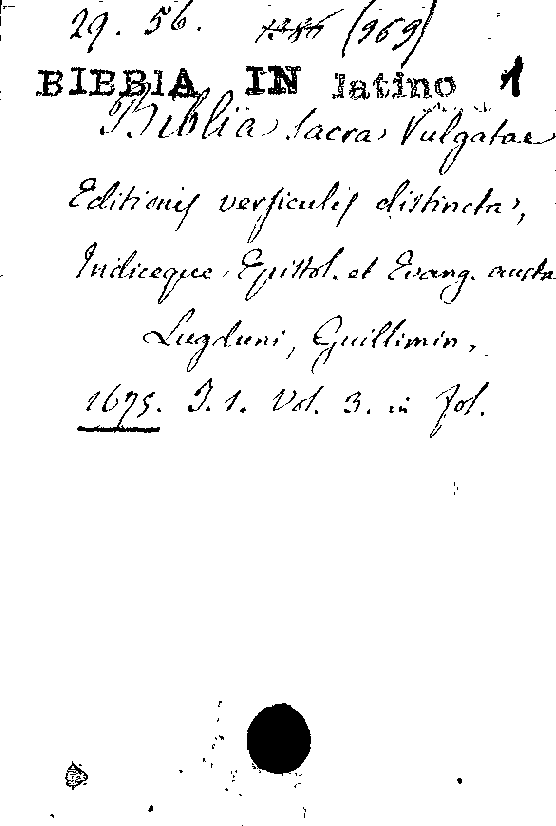 29. 56. (969)
BIBBIA IN latino 1
Biblia sacra Vulgatae
Editionis versiculis distincta,
Indiceque Epistol. et Evang. aucta
Lugduni, Guillimin,
1675. T. 1. Vol. 3. in fol.